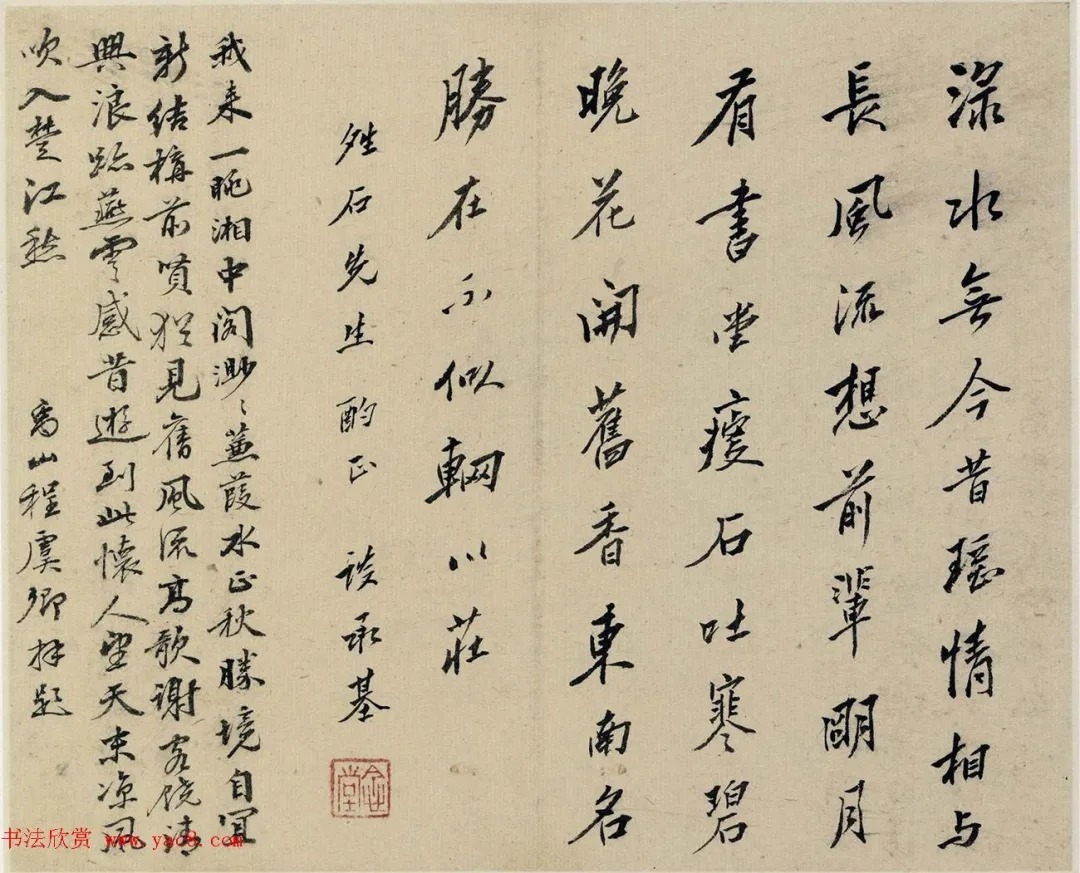 渌水無今昔瑶情相与
長風流想前輩朙月
有書堂瘦石吐寒碧
晚花開舊香東南名
勝在不似輞川莊
石先生酌正 談承基
我来一眺湘中阁渺〻蒹葭水正秋勝境自宜
新結構前賢猶見舊風流高歌謝客饒清
興浪跡燕雲感昔遊到此懷人望天末凉風
吹入楚江愁
禹山程虞卿拜題
书法欣赏 www.yac8.com